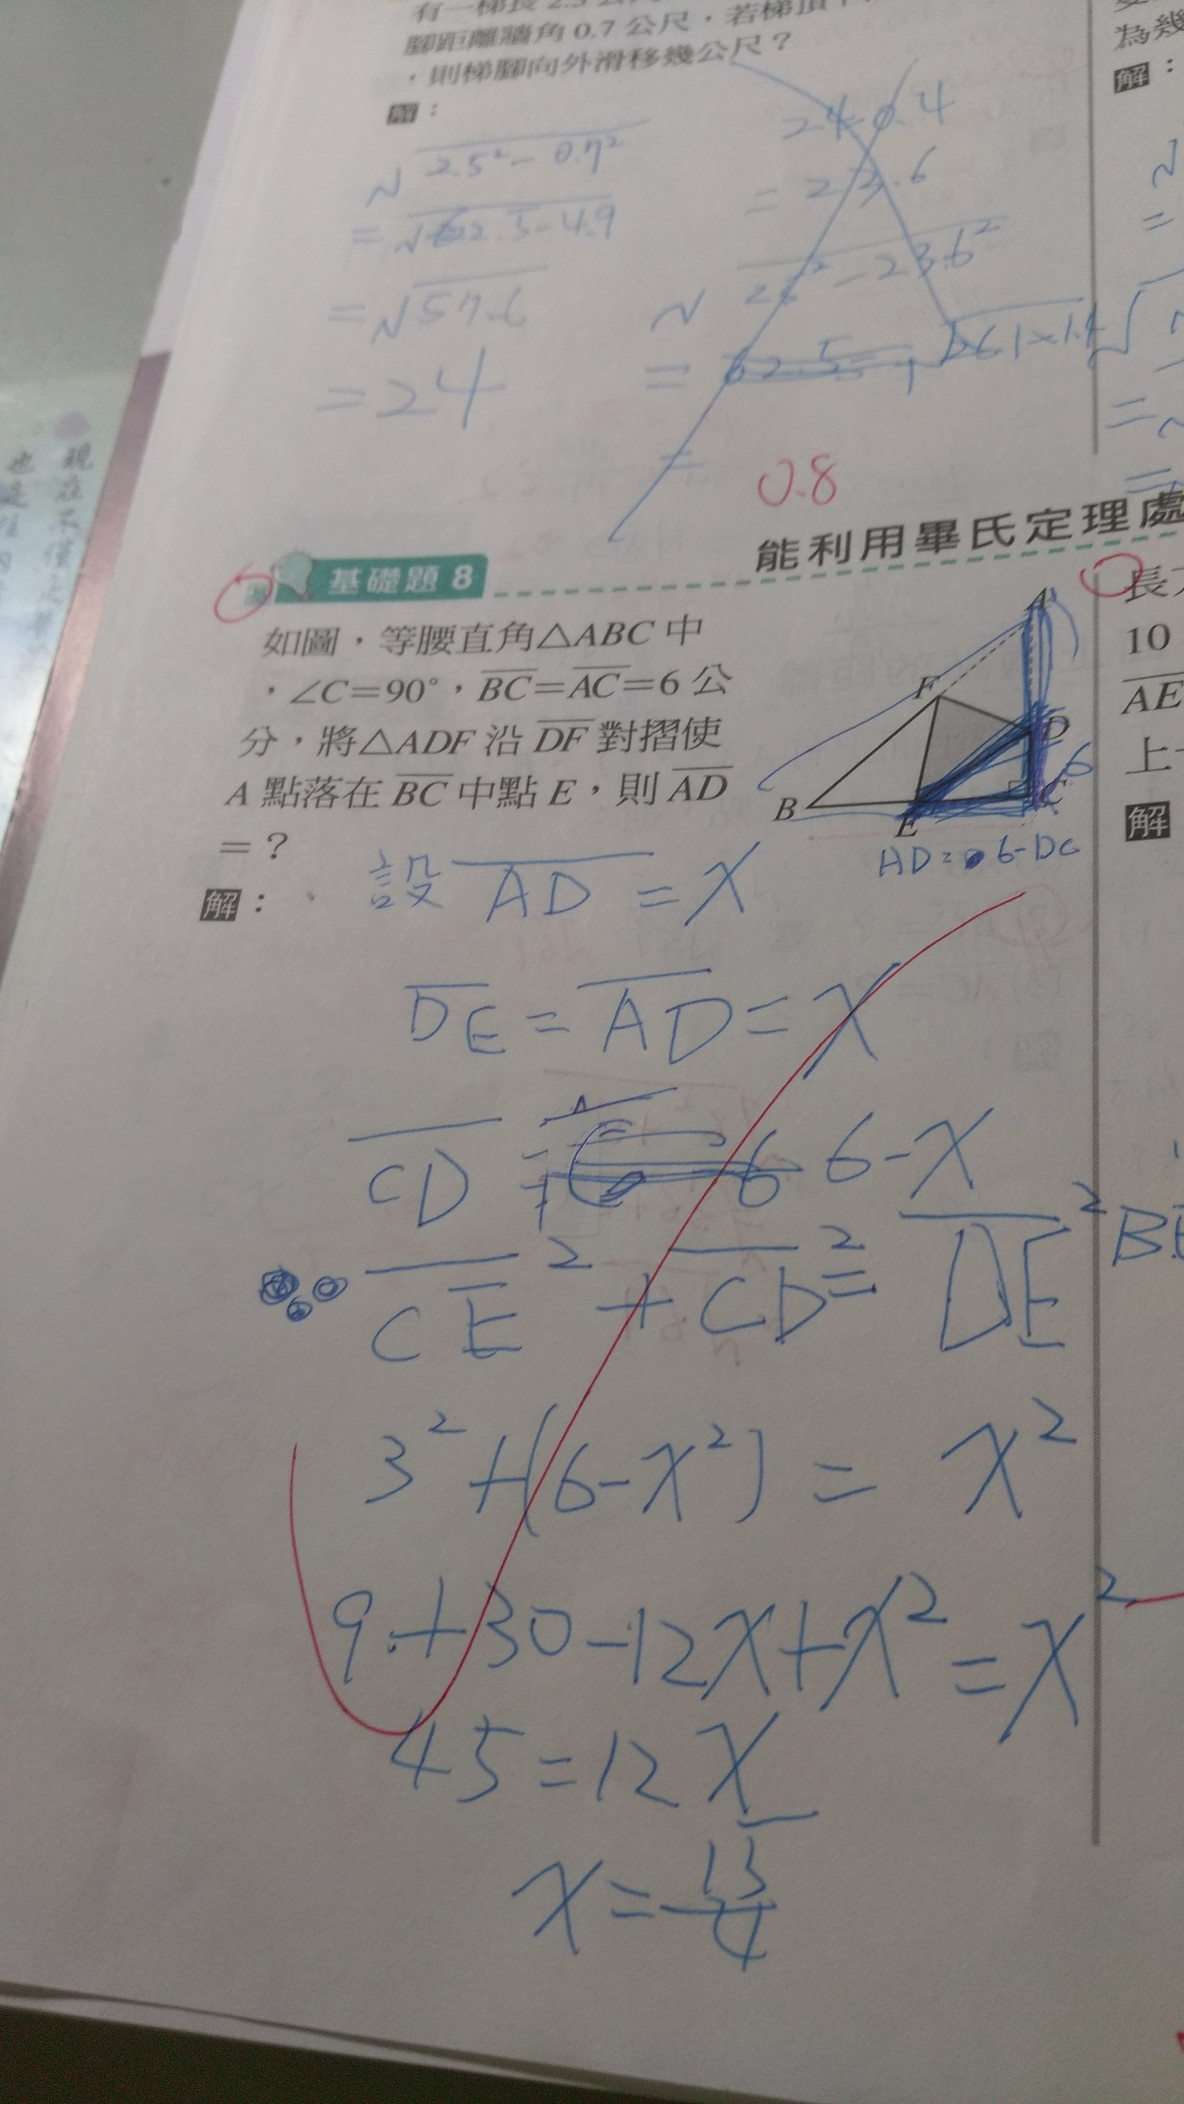 有一梯長 2.5 公尺
腳距離牆角 0.7 公尺，若梯頂下
，則梯腳向外滑移幾公尺？
解：
√2.5²-0.7²
=√622.5-4.9
=√57.6
=24
24-0.4
=23.6
√25²-23.6²
=
=
0.8
為幾
解：
現在不僅
也是
能利用畢氏定理處
基礎題 8
如圖，等腰直角△ABC 中
，∠C=90°，BC=AC=6 公
分，將△ADF 沿 DF 對摺使
A 點落在 BC 中點 E，則 AD
=？
解：
A
F
D
B
E
C
6
AD=6-DC
設 AD = x
DE = AD = x
CD = 6-x
CE² + CD² = DE²
3²+(6-x²) = x²
9+30-12x+x²=x²
45=12x
x=15/4
長
10
AE
上
解
BE